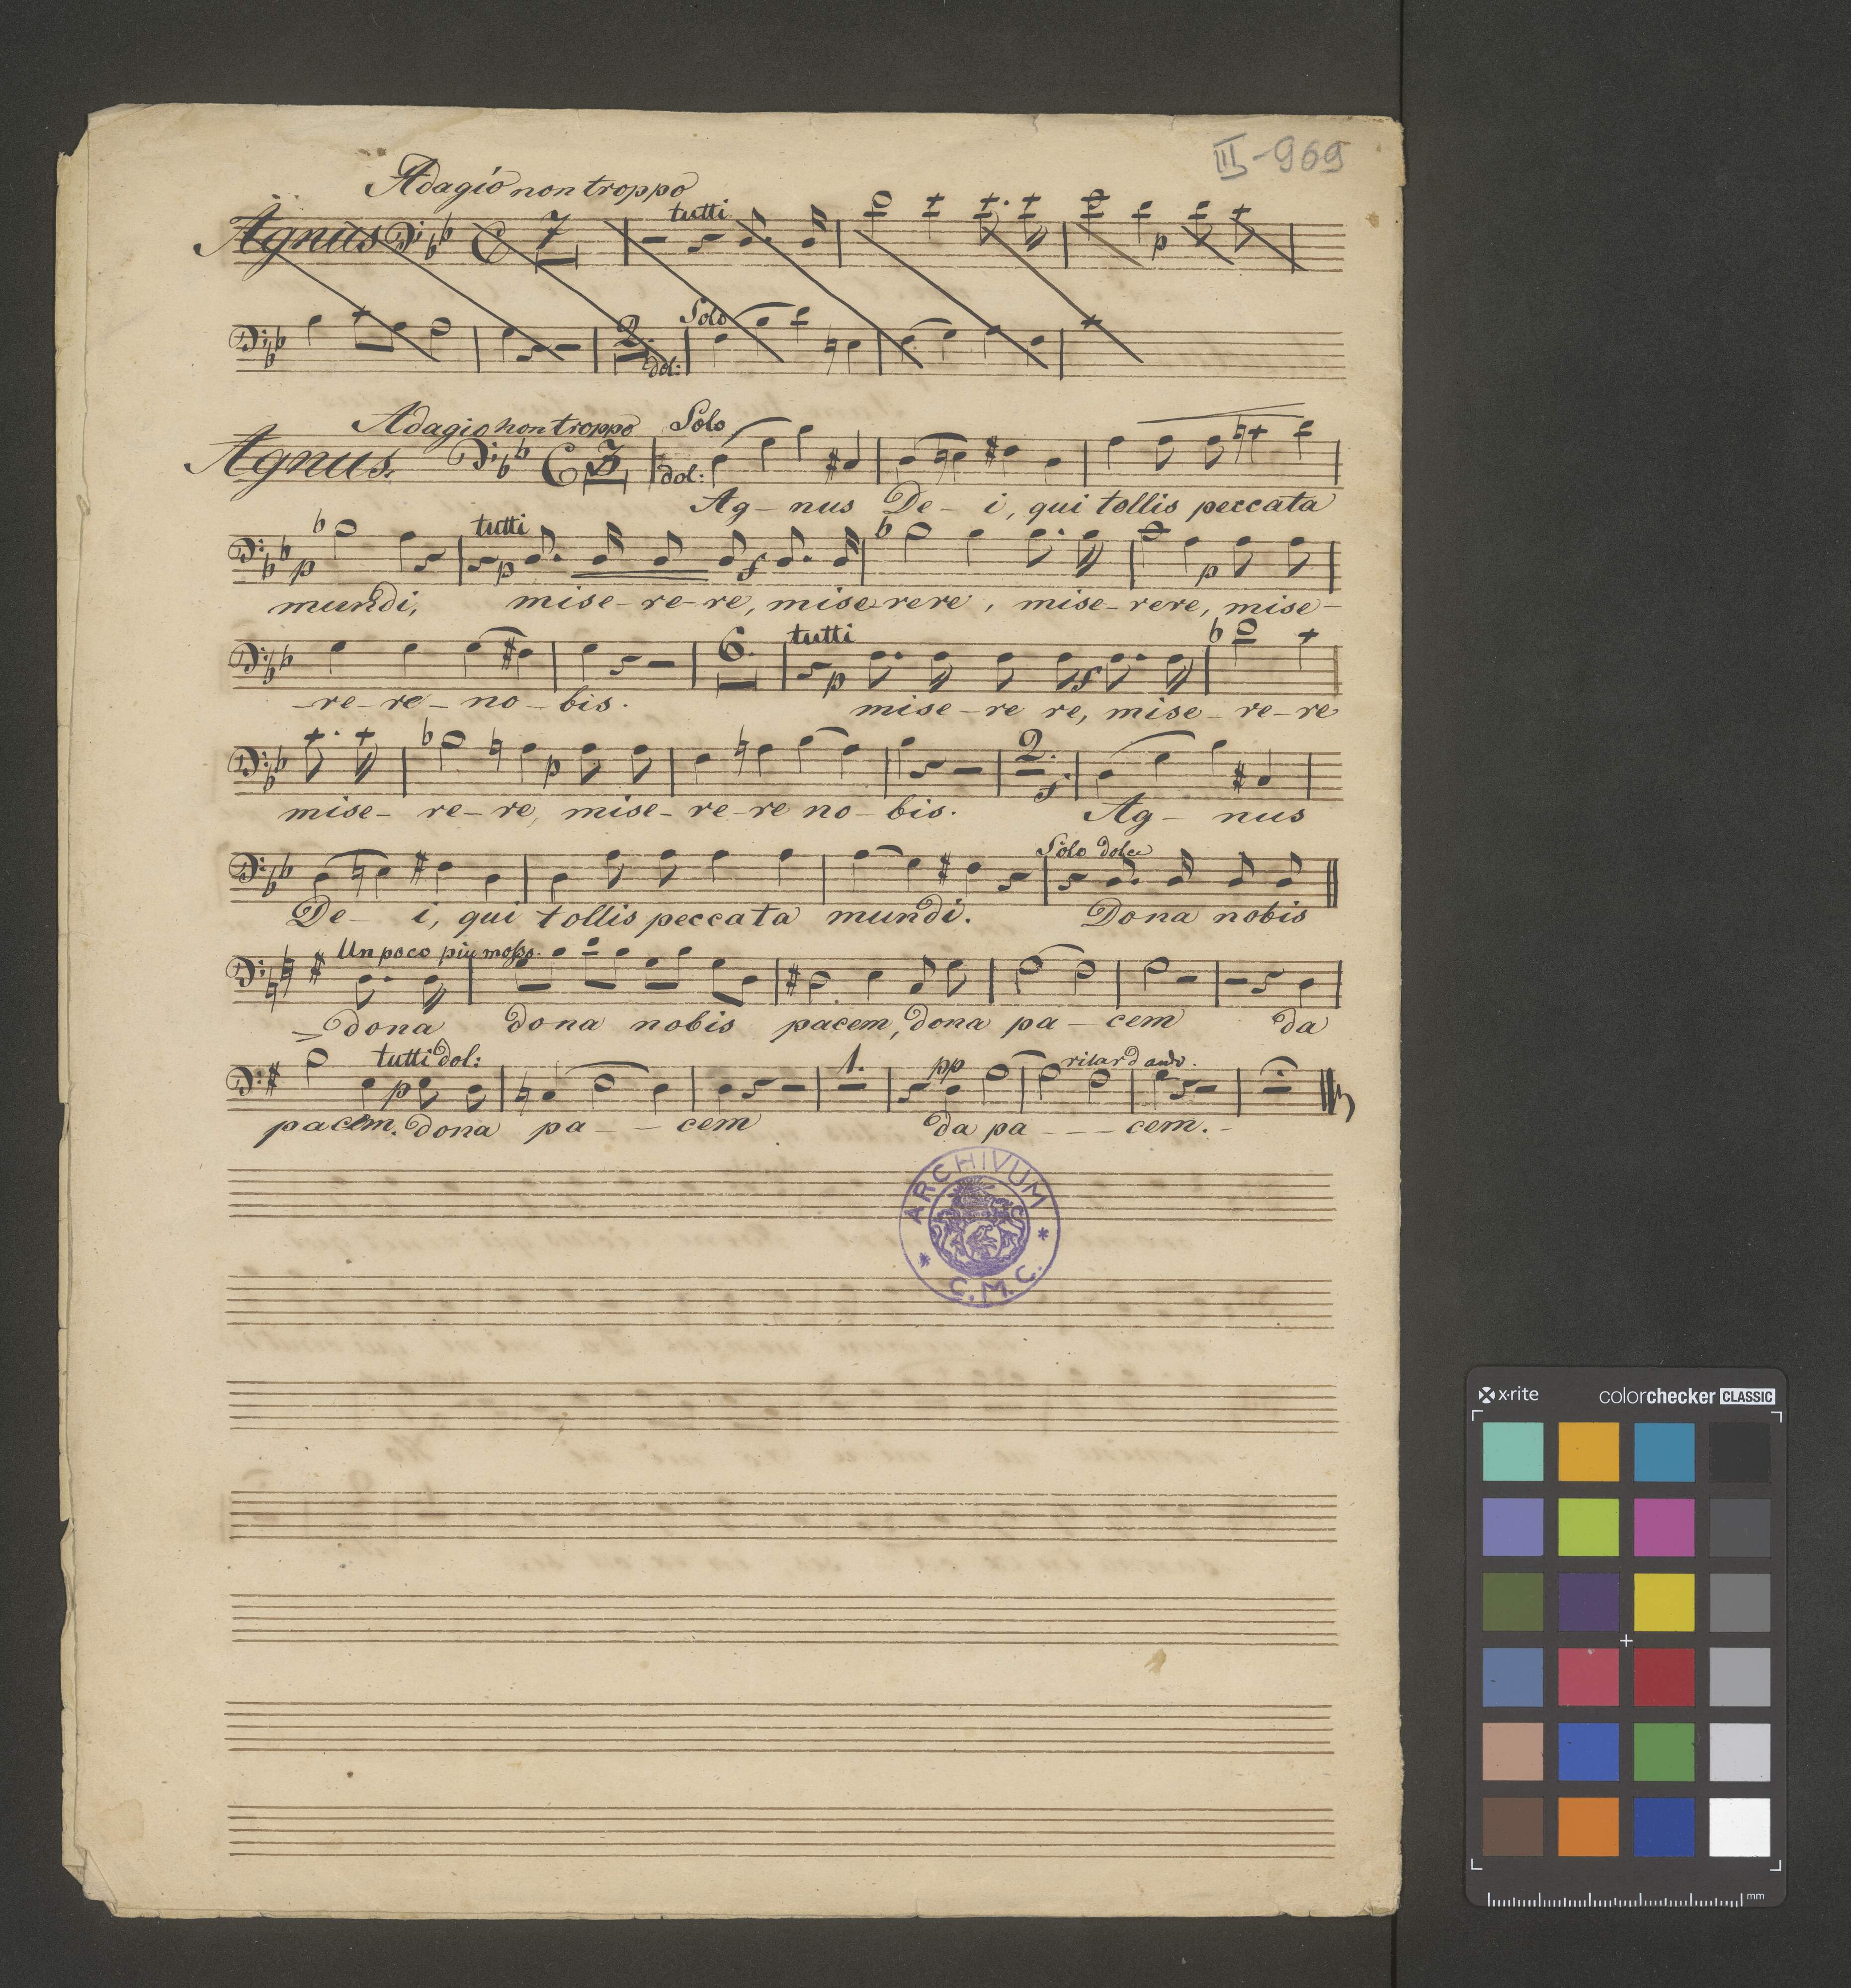 III-969
Adagio non troppo
Agnus 7 tutti p
2. dol: Solo
Adagio non troppo Solo
Agnus. 3 dol:
Ag- nus De- i, qui tollis peccata
p tutti p f p
mundi, mise-re-re, mise-rere, mise-rere, mise-
6. tutti p f
-re-re-no-bis. mise-re re, mise-re-re
p 2. f.
mise- re-re, mise-re-re no-bis. Ag- nus
Solo dolce
De- i, qui tollis peccata mundi. Dona nobis
Un poco più mosso.
dona dona nobis pacem, dona pa-cem da
tutti dol: p 1. pp ritardando.
pacem. dona pa--cem da pa---cem.-
ARCHIVUM
* C.M.C. *
x-rite colorchecker CLASSIC
mm